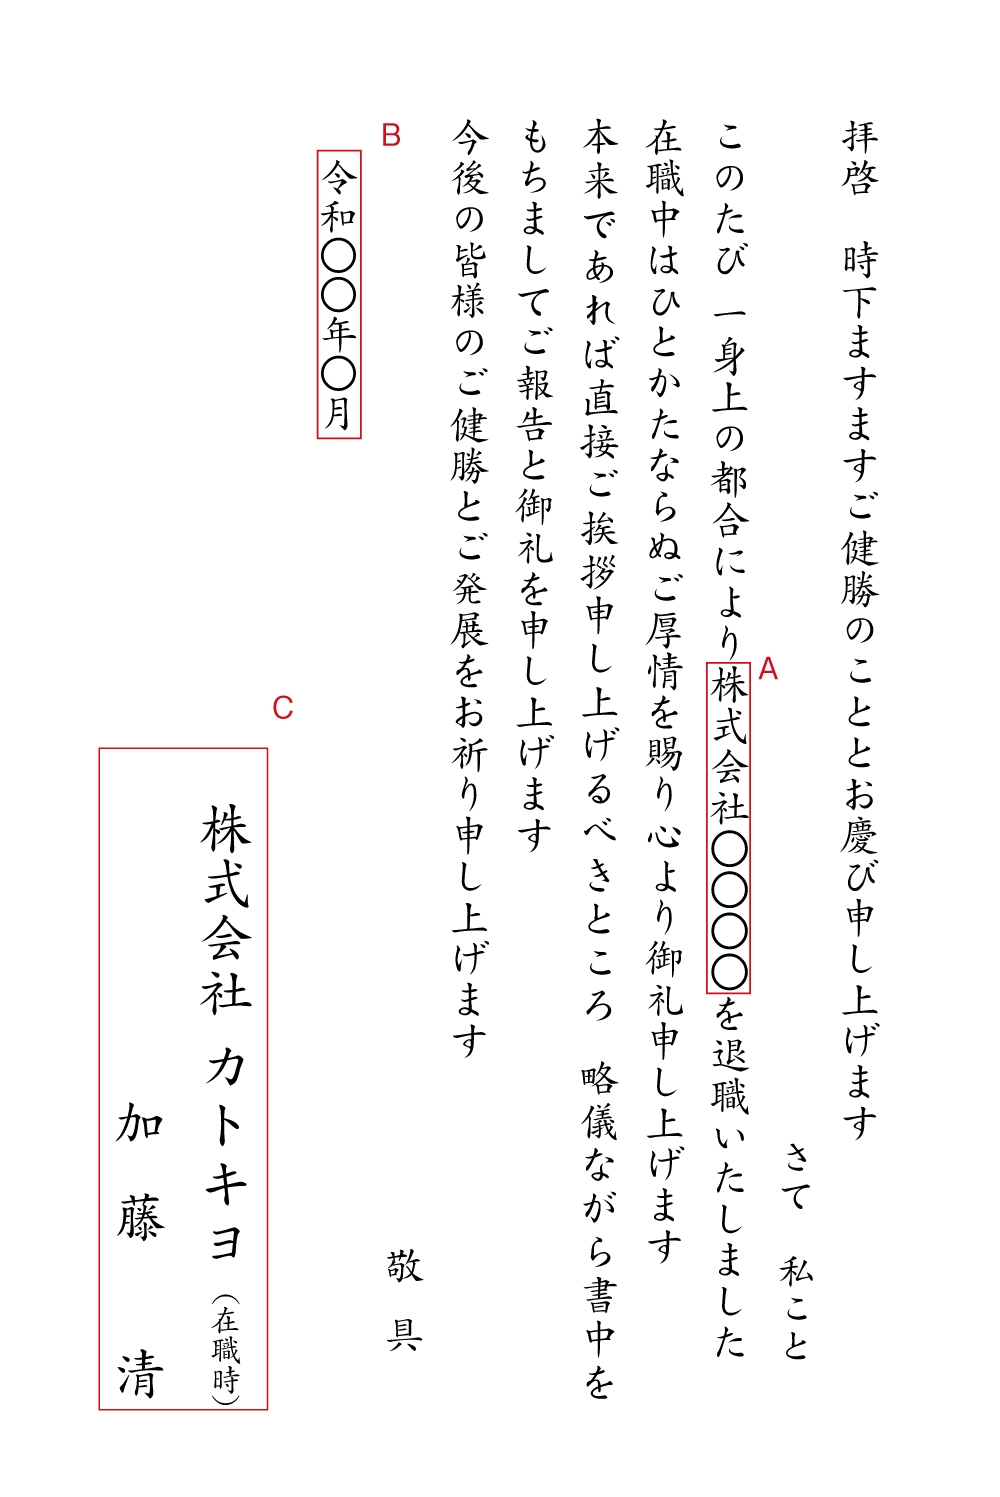 拝啓　時下ますますご健勝のこととお慶び申し上げます
さて　私こと
このたび　一身上の都合により株式会社〇〇〇〇を退職いたしました
A
在職中はひとかたならぬご厚情を賜り心より御礼申し上げます
本来であれば直接ご挨拶申し上げるべきところ　略儀ながら書中を
もちましてご報告と御礼を申し上げます
今後の皆様のご健勝とご発展をお祈り申し上げます
敬具
B
令和〇〇年〇月
C
株式会社 カトキヨ（在職時）
加藤　清